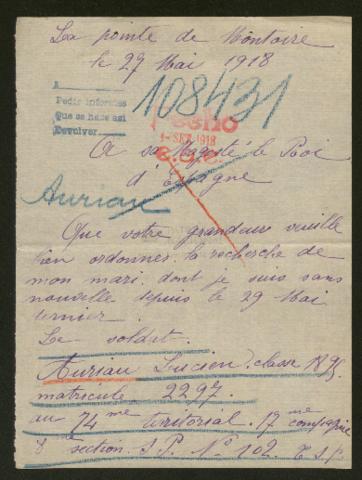 La pointe de Montoire
le 29 Mai 1918
A
Pedir informes
Que se hace así
Devolver
108431
1-SET. 1918
A sa Majesté le Roi
d'Espagne
Auriau
Que votre grandeur veuille
bien ordonner la recherche de
mon mari dont je suis sans
nouvelle depuis le 29 Mai
dernier.
Le soldat.
Auriau Lucien, classe 1895
matricule 2297.
au 74me territorial. 17me compagnie
section. S.P. No 102. T.S.P.